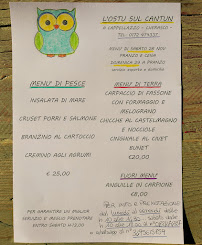 L'OSTU SUL CANTUN
A CAPPELLAZZO - CHERASCO
MENU' DI SABATO 28 NOV
PRANZO E CENA
DOMENICA 29 A PRANZO
MENU' DI PESCE
INSALATA DI MARE
CRUSET PORRI E SALMONE
BRANZINO AL CARTOCCIO
CREMINO AGLI AGRUMI
€ 25,00
MENU' DI TERRA
CARPACCIO DI FASSONE
CON FORMAGGIO E
MELOGRANO
CHICCHE AL CASTELMAGNO
E NOCCIOLE
CINGHIALE AL CIVET
BUNET
€20,00
FUORI MENU'
ANGUILLE IN CARPIONE
€8,00
PER GARANTIRE UN MIGLIOR
SERVIZIO E' GRADITO PRENOTARE
ENTRO SABATO H 12.00